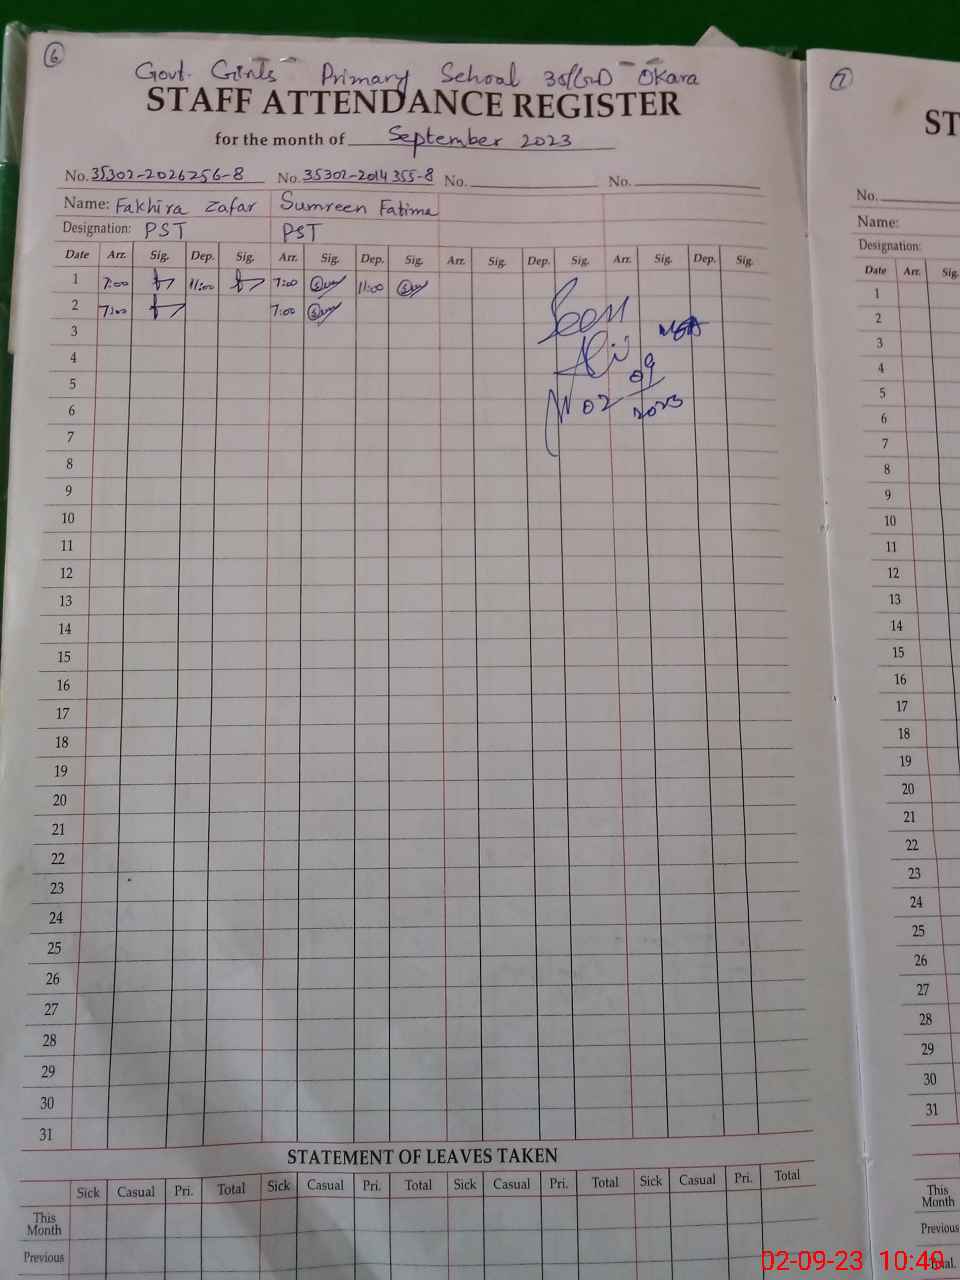 6
Govt. Girls Primary School Okara
STAFF ATTENDANCE REGISTER
for the month of September 2023
No. 35302-2026256-8 No. 35302-2014355-8 No. No.
Name: Fakhira Zafar Sumreen Fatima
Designation: PST PST
Date Arr. Sig. Dep. Sig. Arr. Sig. Dep. Sig. Arr. Sig. Dep. Sig. Arr. Sig. Dep. Sig.
1 7:00 11:00 7:00 11:00
2 7:00 7:00
Seen
3
4
09
5
02
2023
6
7
8
9
10
11
12
13
14
15
16
17
18
19
20
21
22
23
24
25
26
27
28
29
30
31
STATEMENT OF LEAVES TAKEN
Sick Casual Pri. Total Sick Casual Pri. Total Sick Casual Pri. Total Sick Casual Pri. Total
This
Month
Previous
7
ST
No.
Name:
Designation:
Date Arr. Sig
1
2
3
4
5
6
7
8
9
10
11
12
13
14
15
16
17
18
19
20
21
22
23
24
25
26
27
28
29
30
31
This
Month
Previous
Total.
02-09-23 10:49